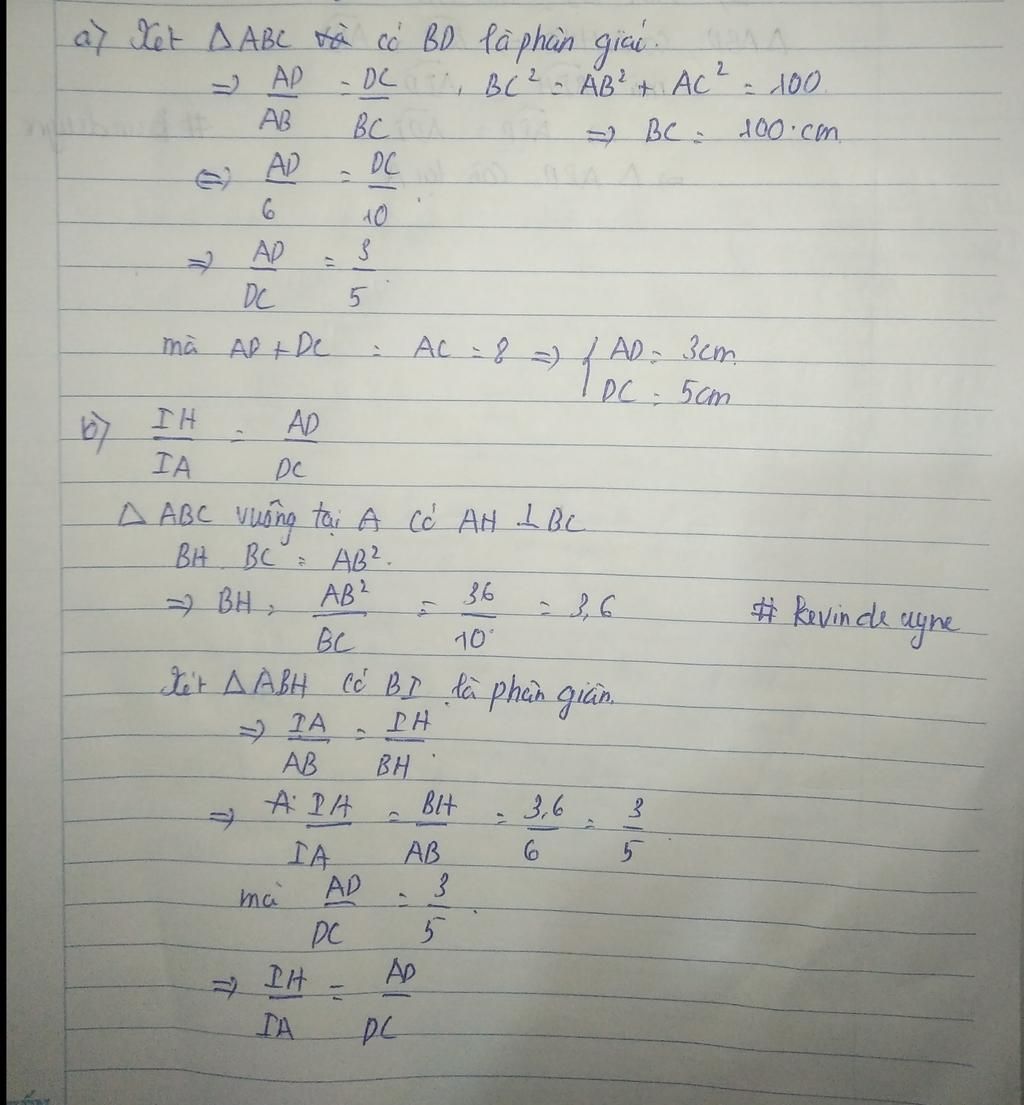 a) Xét △ABC có BD là phân giác.
⇒ AD/AB = DC/BC, BC² = AB² + AC² = 100
⇒ BC = 100 cm
⇔ AD/6 = DC/10
⇒ AD/DC = 3/5
mà AD + DC = AC = 8 ⇒ { AD = 3cm
DC = 5cm
b) IH/IA = AD/DC
△ABC vuông tại A có AH ⊥ BC
BH. BC = AB².
⇒ BH = AB²/BC = 36/10 = 3,6 # Kevin de uyne
Xét △ABH có BI là phân giân.
⇒ IA/AB = IH/BH
⇒ IH/IA = BH/AB = 3,6/6 = 3/5
mà AD/DC = 3/5.
⇒ IH/IA = AD/DC